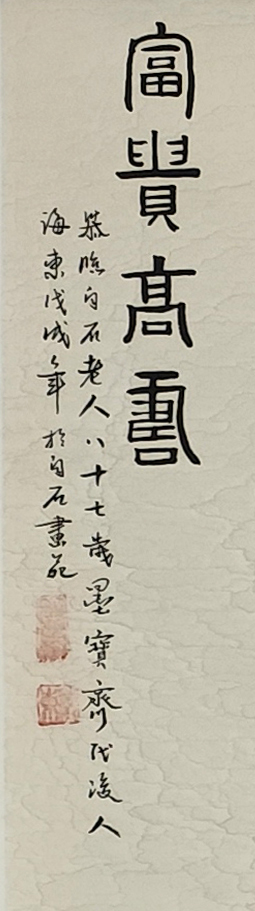 富貴高壽
恭臨白石老人八十七歲墨寶齊氏後人
海東戊戌年於白石畫苑